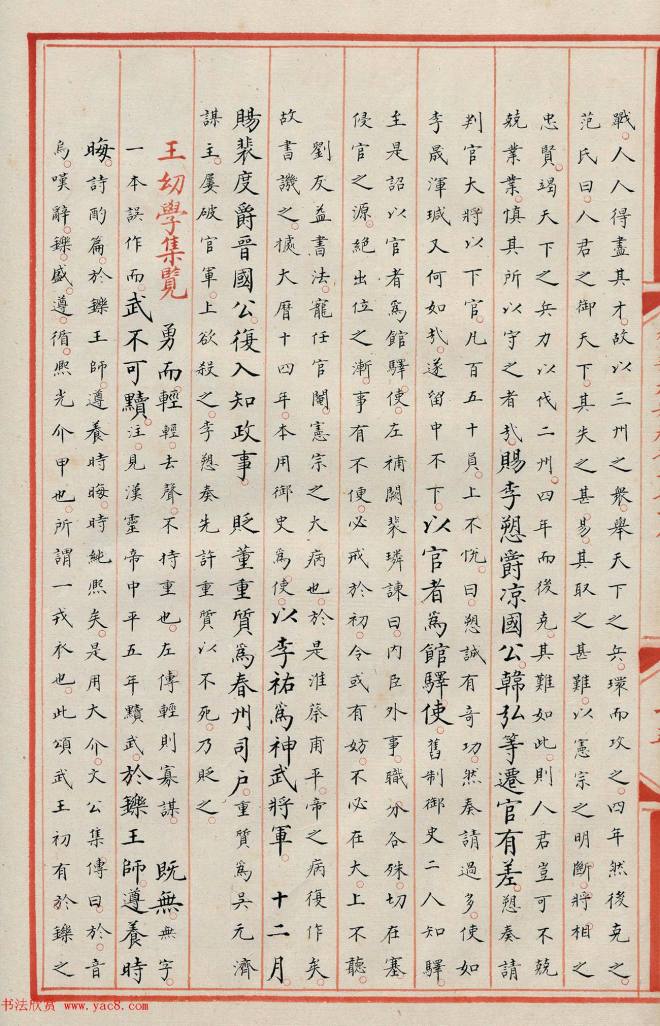 戰人人得盡其才故以三州之衆舉天下之兵環而攻之四年然後克之
范氏曰人君之御天下其失之甚易其取之甚難以憲宗之明斷將相之
忠賢竭天下之兵力以伐二州四年而後克其難如此則人君豈可不兢
兢業業慎其所以守之者哉賜李愬爵凉國公韓弘等遷官有差愬奏請
判官大將以下官凡百五十員上不悅曰愬誠有奇功然奏請過多使如
李晟渾瑊又何如哉遂留中不下以宦者爲館驛使舊制御史二人知驛
至是詔以宦者爲館驛使左補闕裴璘諫曰內臣外事職分各殊切在塞
侵官之源絕出位之漸事有不便必戒於初令或有妨不必在大上不聽
劉友益書法寵任宦閹憲宗之大病也於是淮蔡甫平帝之病復作矣
故書譏之據大曆十四年本用御史爲使以李祐爲神武將軍十二月
賜裴度爵晉國公復入知政事貶董重質爲春州司戶重質爲吳元濟
謀主屢破官軍上欲殺之李愬奏先許重質以不死乃貶之
王幼學集覽 勇而輕輕去聲不持重也左傳輕則寡謀 既無無字
一本誤作而武不可黷注見漢靈帝中平五年黷武於鑠王師遵養時
晦詩酌篇於鑠王師遵養時晦時純熙矣是用大介文公集傳曰於音
烏嘆辭鑠盛遵循熙光介甲也所謂一戎衣也此頌武王初有於鑠之
书法欣赏 www.yac8.com